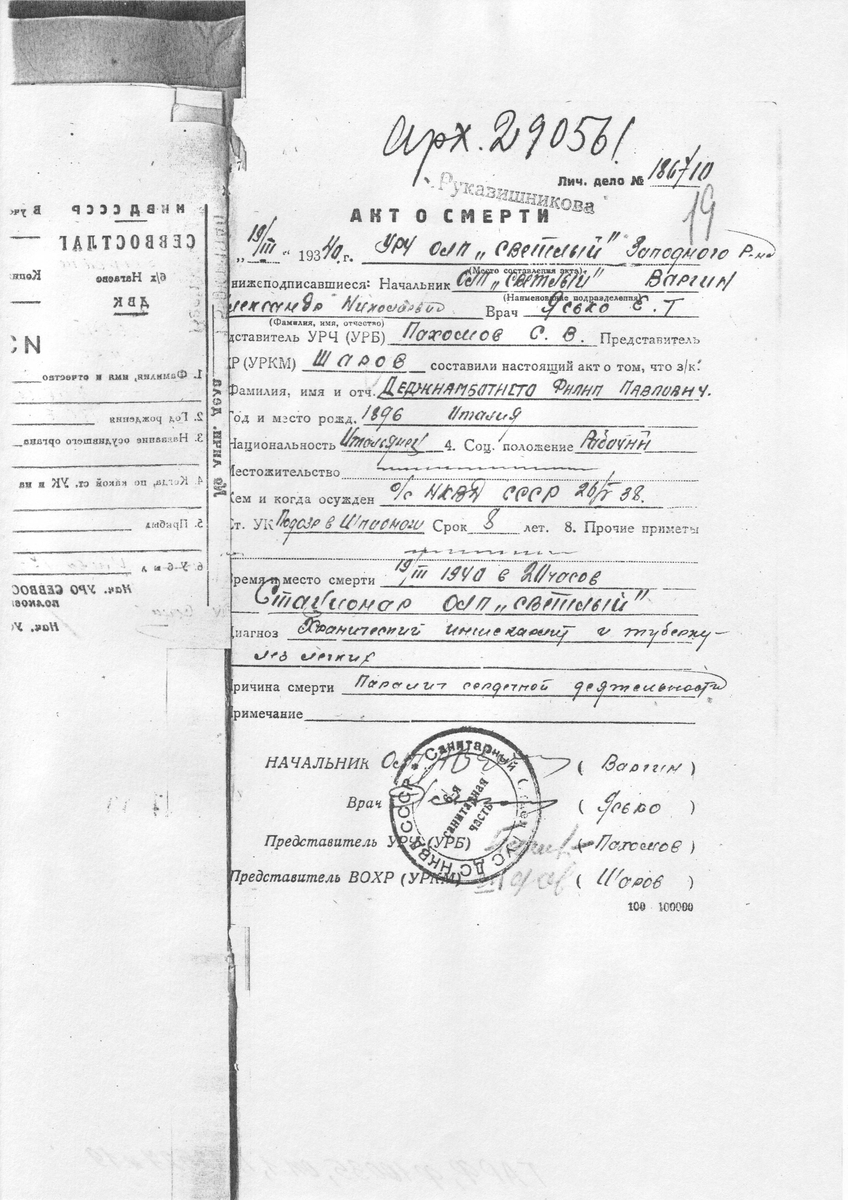 Арх. 290561
Лич. дело № 1867/10
Рукавишникова
19
АКТ О СМЕРТИ
„19/III“ 1940 г. УРЧ ОЛП „Светлый“ Западного Р-на
(Место составления акта)
нижеподписавшиеся: Начальник ОЛП „Светлый“ Варгин
(Наименование подразделения)
лександр Николаевич Врач Ясько Е. Т
(Фамилия, имя, отчество)
дставитель УРЧ (УРБ) Пахомов С. В. Представитель
ХР (УРКМ) Шаров составили настоящий акт о том, что з/к:
Фамилия, имя и отч. Держнамботисто Филип Павлович.
Год и место рожд. 1896 Италия
Национальность Итальянец 4. Соц. положение Рабочий
Местожительство
Кем и когда осужден о/с НКВД СССР 26/V 38.
Ст. УК Подозр в Шпионаж Срок 8 лет. 8. Прочие приметы
Время и место смерти 19/III 1940 в 20 часов
Стационар ОЛП „Светлый“
Диагноз и туберку-
лез легких
Причина смерти Паралич сердечной деятельности
Примечание
НАЧАЛЬНИК (Варгин)
Врач (Ясько)
Представитель УРЧ (УРБ) (Пахомов)
Представитель ВОХР (УРКМ) Шаров (Шаров)
Санитарный Отдел УС ДС НКВД СССР
санитарная
часть
100 100000
НКВД СССР В уче
СЕВВОСТЛАГ
б/х Нагаево Копи
ДВК
1. Фамилия, имя и отчество
2. Год рождения
3. Название осудившего органа
4. Когда, по какой ст. УК и на
5. Прибыл
6. Убыл
Нач. УРО СЕВВОС
Нач. УС